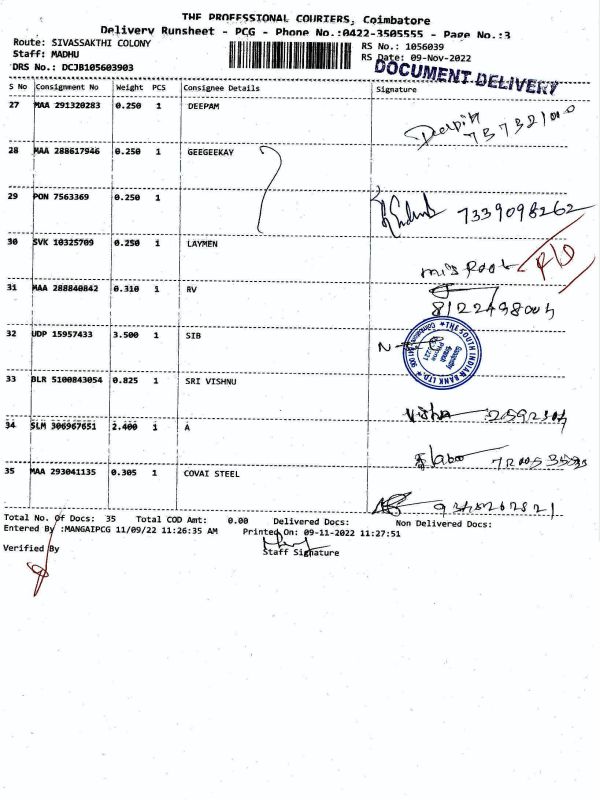 THE PROFESSIONAL COURIERS, Coimbatore
Delivery Runsheet - PCG - Phone No.:0422-3505555 - Page No.:3
Route: SIVASSAKTHI COLONY RS No.: 1056039
Staff: MADHU RS Date: 09-Nov-2022
DRS No.: DCJB105603903 DOCUMENT DELIVERY
S No Consignment No Weight PCS Consignee Details Signature
27 MAA 291320283 0.250 1 DEEPAM
Deepika
28 MAA 288617946 0.250 1 GEEGEEKAY
29 PON 7563369 0.250 1
7339098262
30 SVK 10325709 0.250 1 LAYMEN
mis Root R/O
31 MAA 288840842 0.310 1 RV
32 UDP 15957433 3.500 1 SIB
THE SOUTH INDIAN BANK LTD.
33 BLR 5100843054 0.825 1 SRI VISHNU
Vishn
34 SLM 306967651 2.400 1 A
35 MAA 293041135 0.305 1 COVAI STEEL
Total No. Of Docs: 35 Total COD Amt: 0.00 Delivered Docs: Non Delivered Docs:
Entered By :MANGAIPCG 11/09/22 11:26:35 AM Printed On: 09-11-2022 11:27:51
Verified By Staff Signature